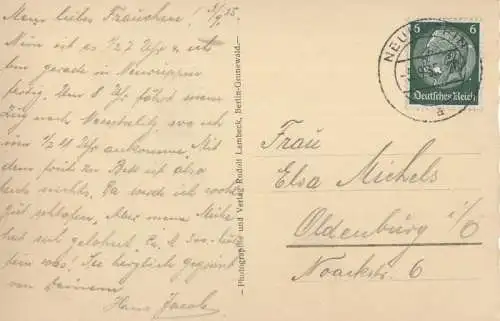 Mein liebes Frauchen! 3/9.35.
Nun ist es ½ 7 Uhr & ich
bin gerade in Neuruppin
fertig. Um 8 Uhr fährt mein
Zug nach Neustrelitz, wo ich
um ½ 11 Uhr ankomme. Mit
dem früh zu Bett ist also
heute nichts. Da werde ich wohl
gut schlafen. Aber meine Mühe
hat sich gelohnt.
was! Sei herzlich gegrüßt
von Deinem
Hans Jacob
Photographie und Verlag Rudolf Lambeck, Berlin-Grunewald.
NEURUPPIN
a
6 6
Deutsches Reich
Frau
Elsa Michels
Oldenburg i/O
Noackstr. 6